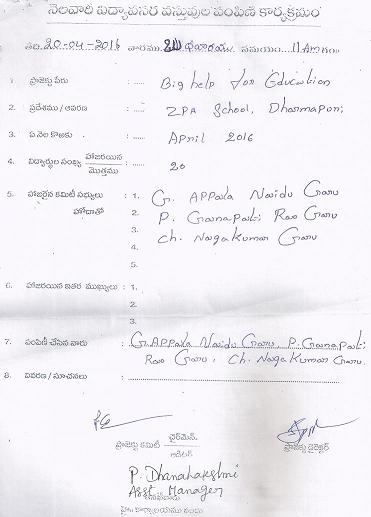 నెలవారి విద్యావసర వస్తువుల పంపిణి కార్యక్రమం
తేది. 20-04-2016 వారము బుధవారము సమయం. 11 AM గం.
1. ప్రాజెక్టు పేరు : ..... Big help for Education
2. ప్రదేశము / ఆవరణ : ..... ZPA School, Dharmapuri,
3. ఏ నెల కొఱకు : ..... April 2016
4. విద్యార్థుల సంఖ్య హాజరయిన / మొత్తము : ..... 20
5. హాజరైన కమిటీ సభ్యులు : 1. G. APPala Naidu Garu
హోదాతో 2. P. Ganapati Rao Garu
3. Ch. Naga Kumar Garu
4.
5.
6. హాజరయిన ఇతర ముఖ్యులు : 1.
2.
3.
7. పంపిణీ చేసిన వారు : G. APPala Naidu Garu, P. Ganapati
Rao Garu, Ch. Naga Kumar Garu.
8. వివరణ / సూచనలు :
ప్రాజెక్టు కమిటీ ఛైర్మెన్ ప్రాజెక్టు డైరెక్టర్
ఆడిటర్
P. Dhanalakshmi
Asst. Manager
హై. కార్యాలయము నందు